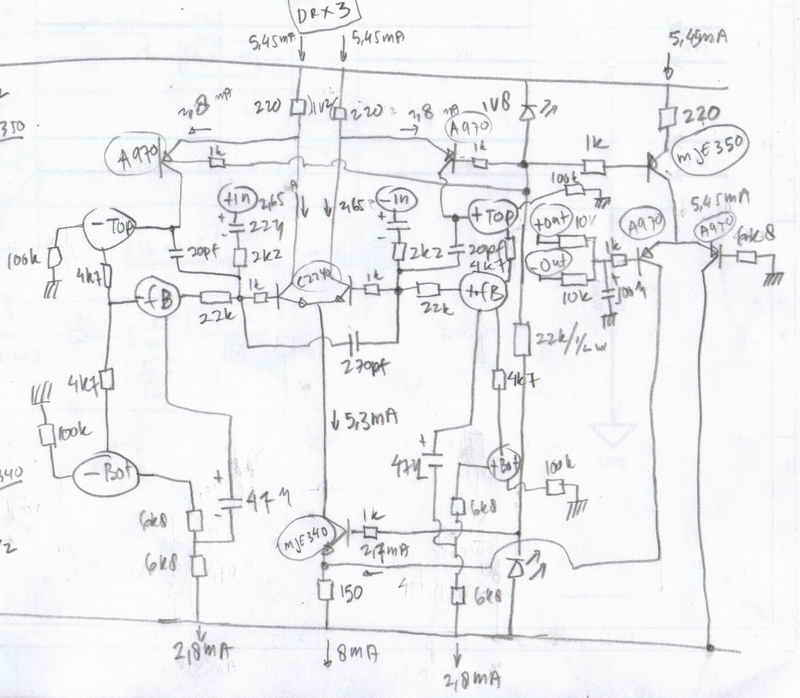 DRX3
5,45mA
5,45mA
5,45mA
2,8 mA
220
1V2
220
2,8 mA
1V8
220
350
A970
1k
A970
1k
1k
MJE350
100k
+in
2,65
-in
-Top
+Top
+out
10k
A970
5,45mA
A970
6k8
22µ
2k2
2k2
20pf
20pf
4k7
-out
1k
100k
4k7
-fB
1k
C2240
1k
+fB
10k
100µ
22k
22k
270pf
22k/1/2w
4k7
4k7
100k
5,3mA
-Bot
47µ
+Bot
100k
340
47µ
6k8
6k8
MJE340
1k
2,7mA
6k8
150
6k8
2,8mA
8mA
2,8mA